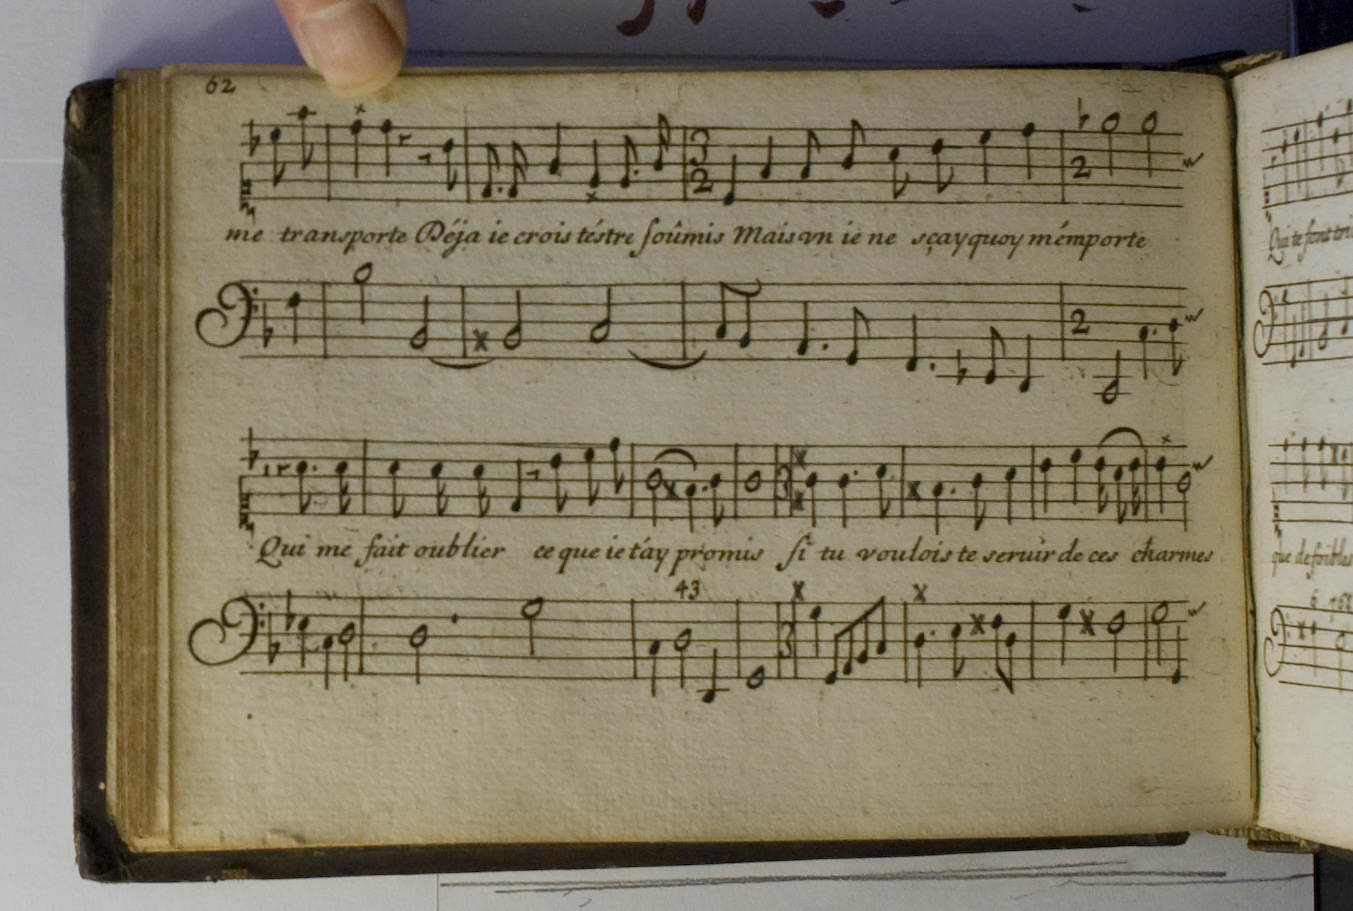 62
3
2
2
me transporte Déja ie crois téstre soûmis Mais vn ie ne sçay quoy m'emporte
2
Qui te font
Qui me fait oublier ce que ie t'ay promis si tu voulois te seruir de ces charmes
3
que de foibles
43
3
6